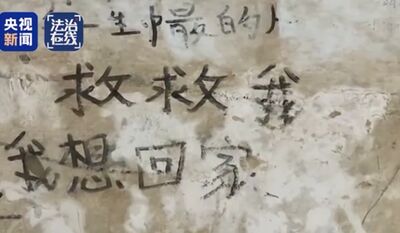 央视新闻
法治在线
一生中最的人
救救我
我想回家